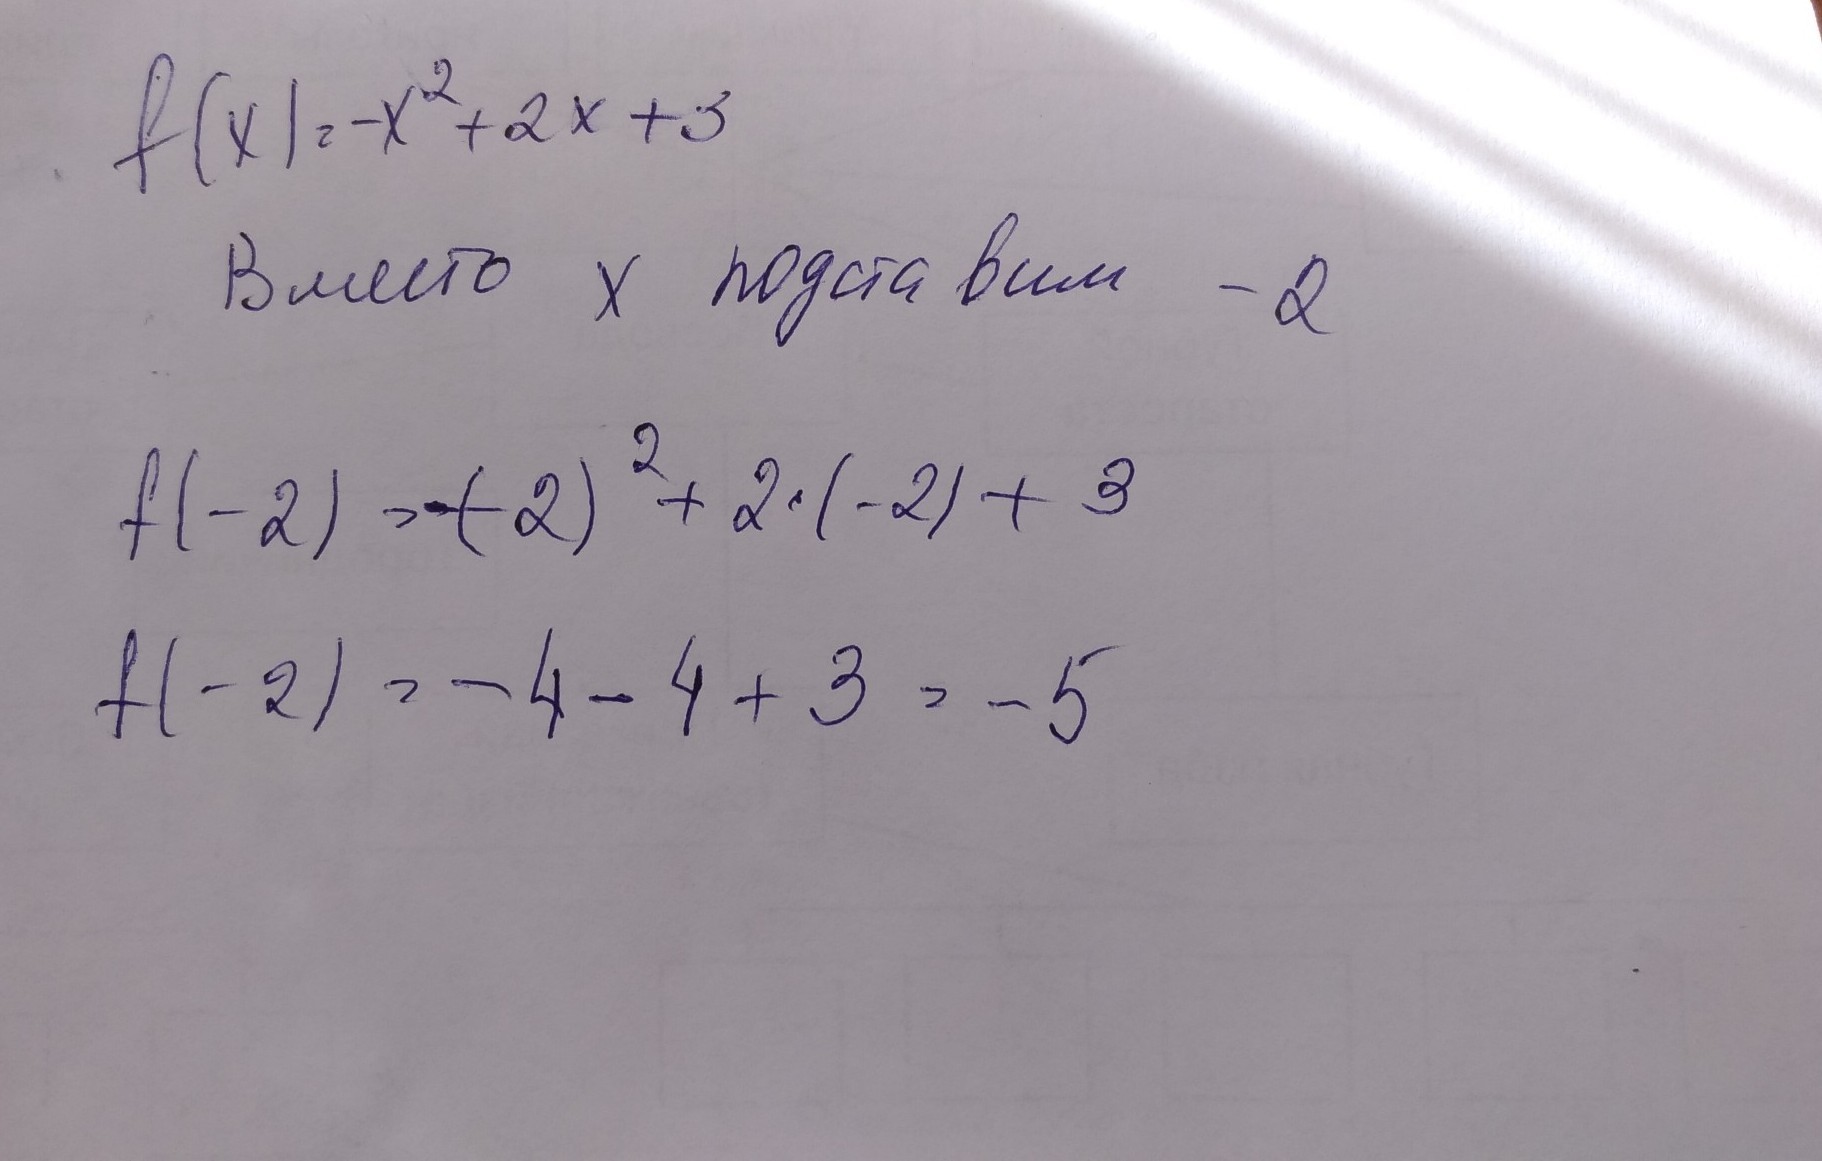 f(x)=-x²+2x+3
Вместо x подставим -2
f(-2)=-(-2)²+2·(-2)+3
f(-2)=-4-4+3=-5